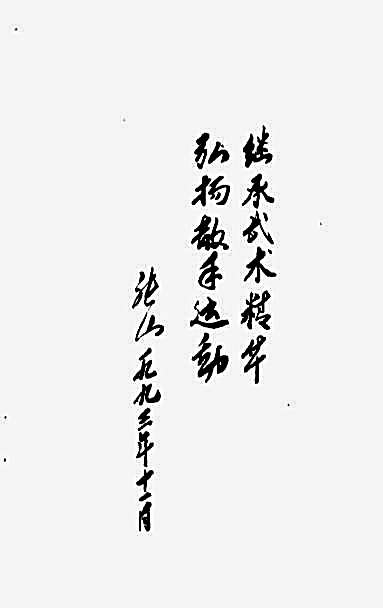 继承武术精华
弘扬散手运动
张山 一九九三年十一月